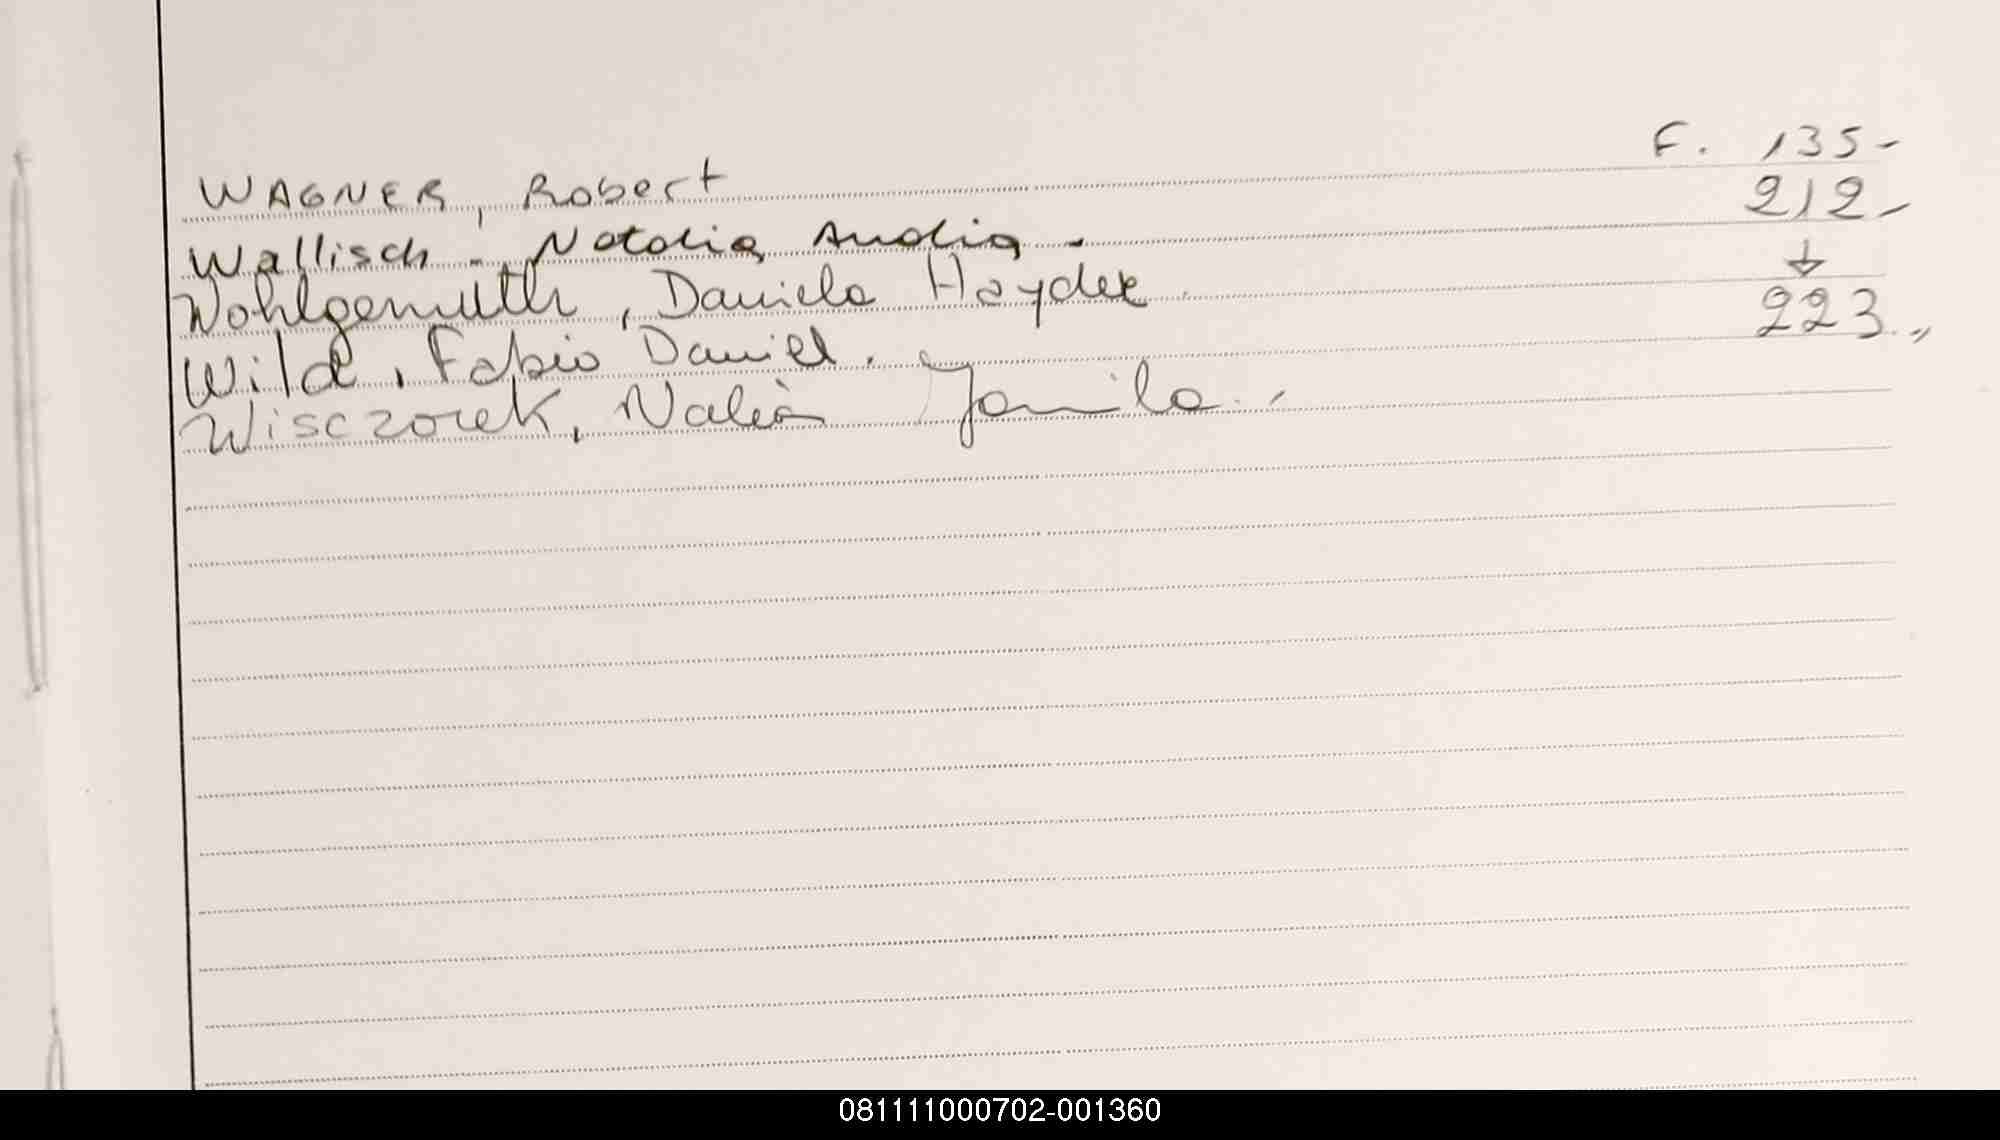 WAGNER, Robert F. 135-
Wallisch - Natalia Analia. 212-
Wohlgemuth, Daniela Haydee. ↓
Wild, Fabio Daniel. 223.,
Wisczorek, Nalia Jamila.
081111000702-001360